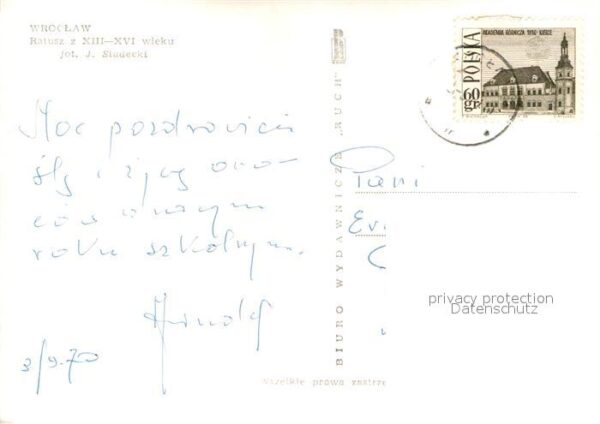 WROCŁAW
Ratusz z XIII—XVI wieku
fot. J. Siudecki
AKADEMIA GÓRNICZA 1816 KIELCE
POLSKA
60 gr
Moc pozdrowień
ślę i życzę owo-
ców w nowym
roku szkolnym.
3/9.70
BIURO WYDAWNICZE „RUCH"
Pani
Ew
privacy protection
Datenschutz
Wszelkie prawa zastrze